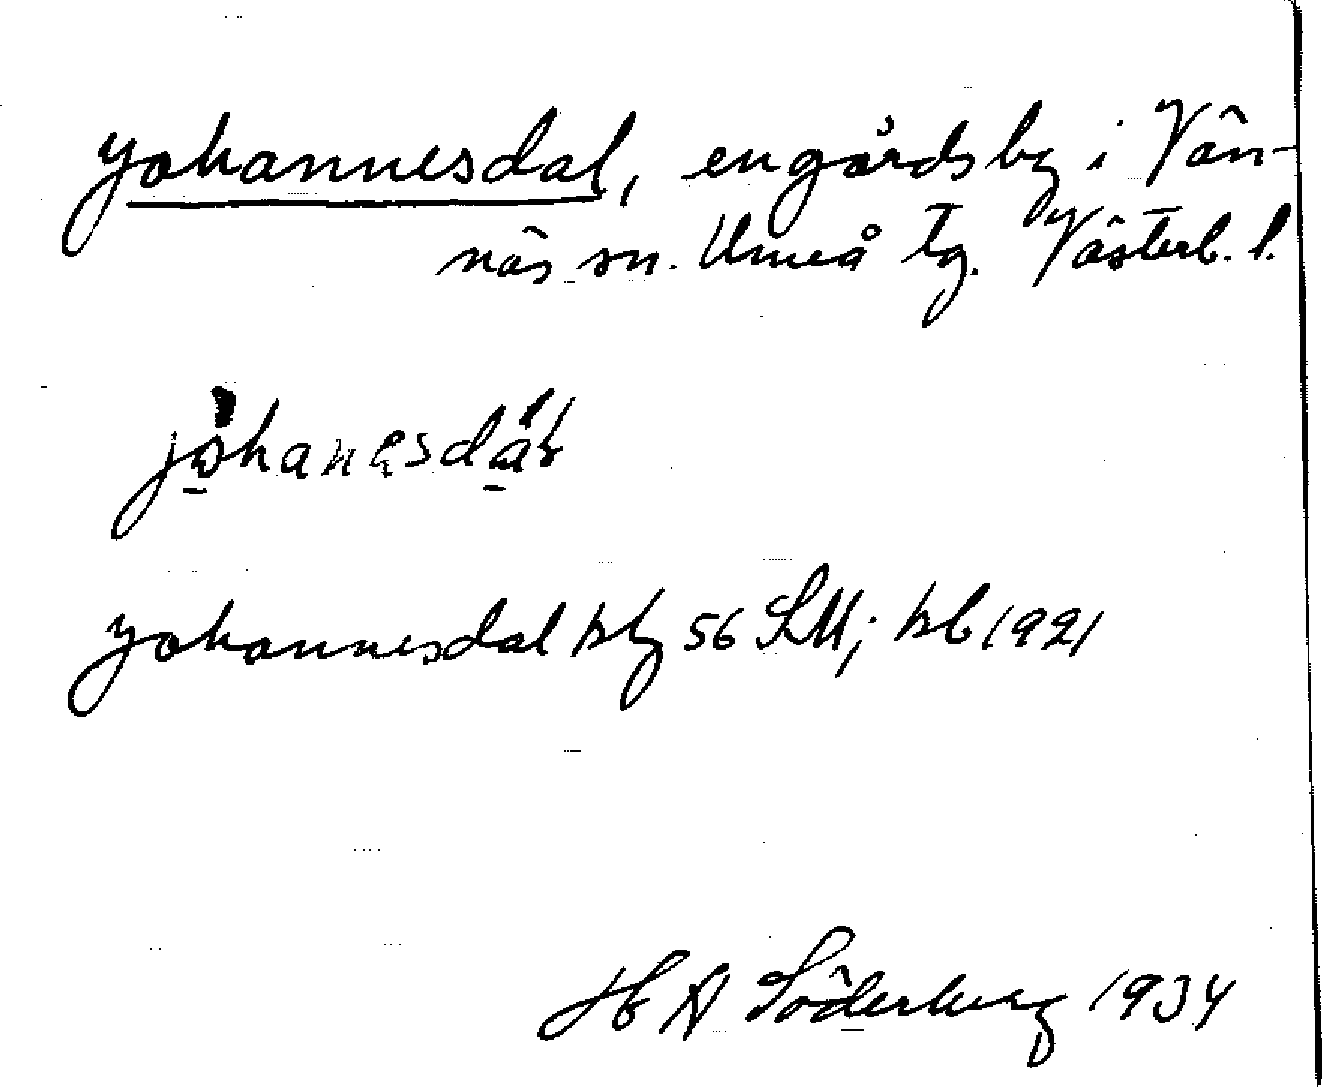 Johannesdal, engårdsby i Vän-
näs sn. Umeå tg. Västerb. l.
johanesdal
Johannesdal hbg 56 SM; hb 1921
H A Söderberg 1934